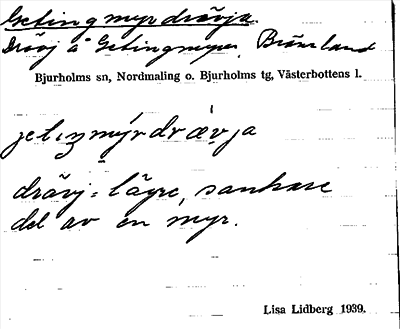 Getingmyrdrävja
Drävj å Getingmyren, Brännland
Bjurholms sn, Nordmaling o. Bjurholms tg, Västerbottens l.
drävj = lägre, sankare
del av en myr.
Lisa Lidberg 1939.